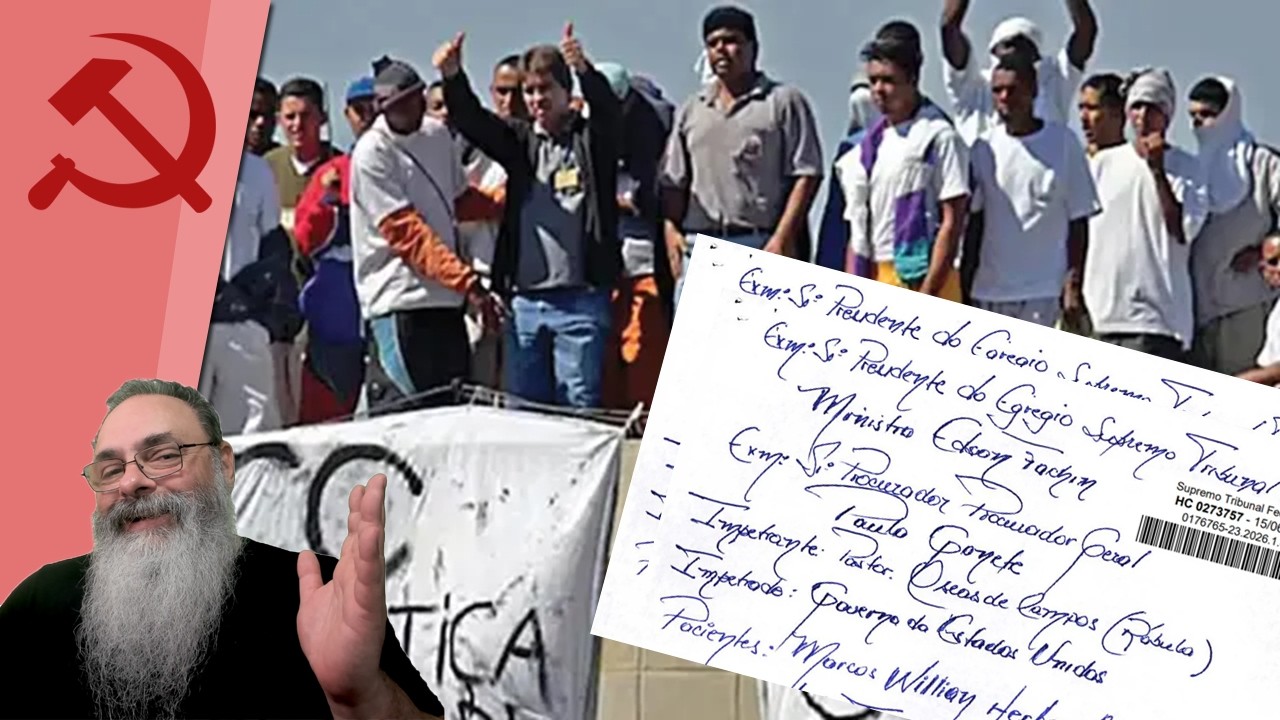 CC
TICA
Exmº Srº Presidente do Egregio Supremo T.
Exmº Srº Presidente do Egregio Supremo Tribunal
Ministro Edson Fachin
Exmº Srº Procurador Procurador Geral
Paulo Gonete
Impetrante: Pastor. Oseas de Campos (Rábula)
Impetrado: Governo do Estados Unidos
Pacientes: Marcos Willian
Supremo Tribunal Fe
HC 0273757 - 15/0
0176765-23.2026.1.